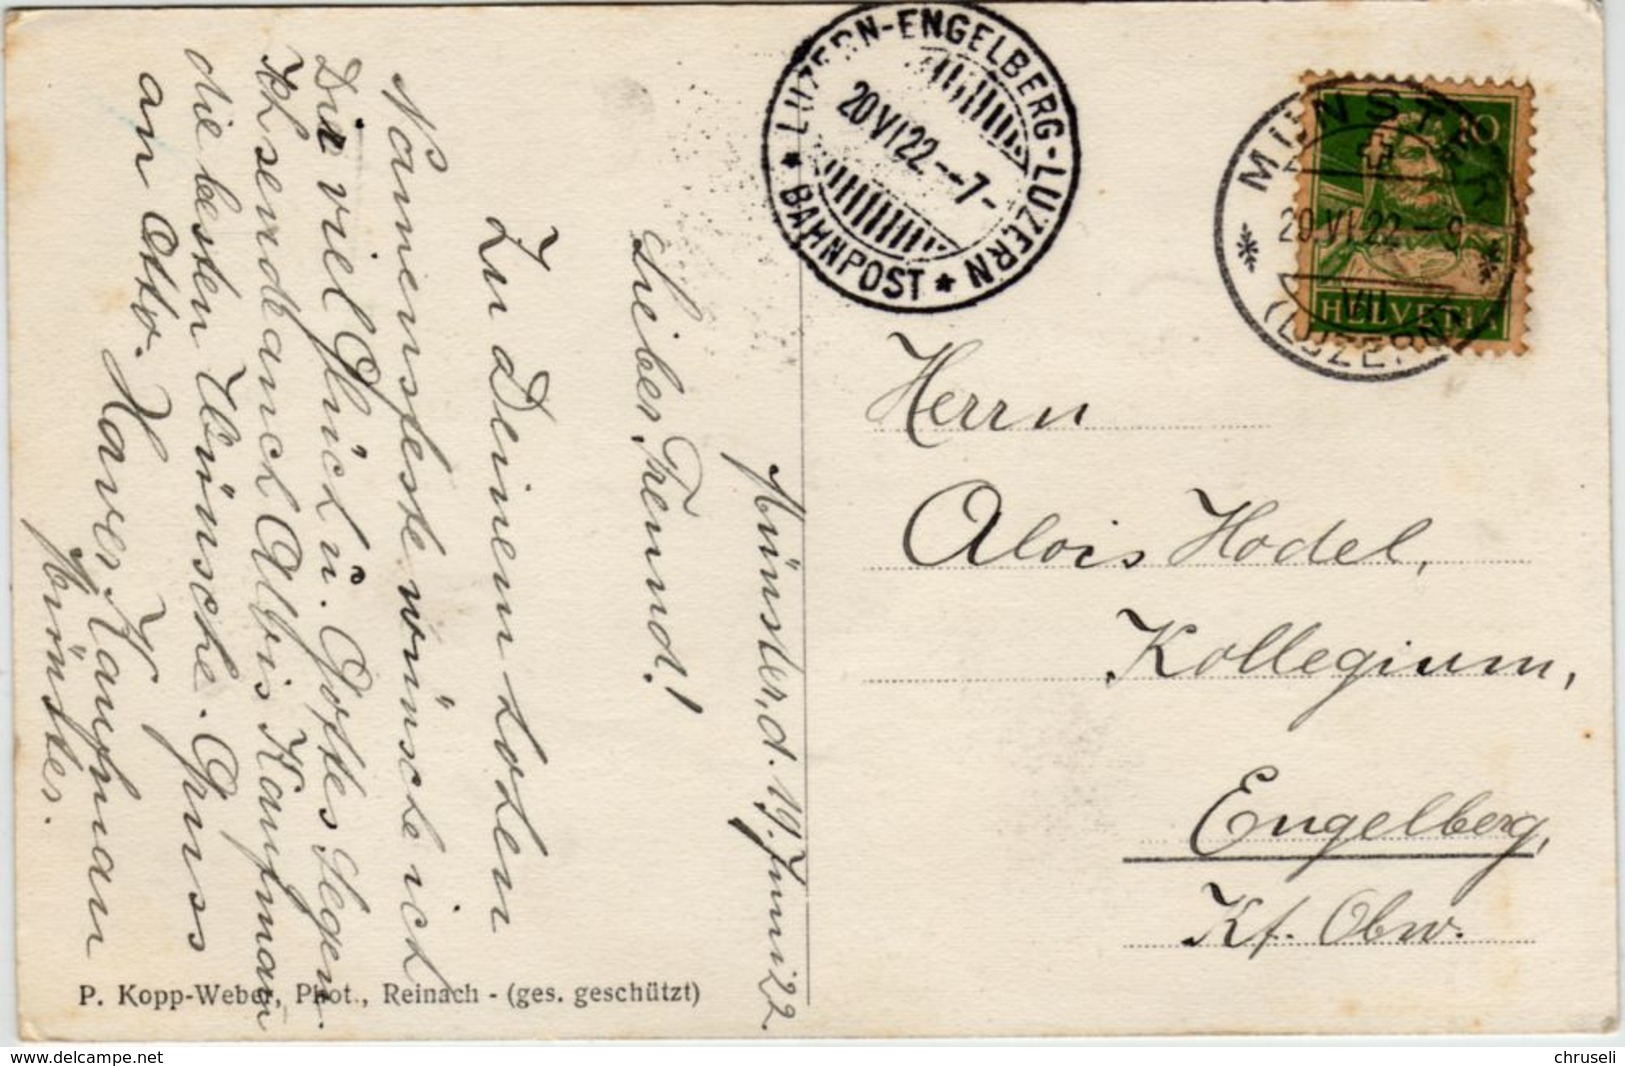 Münster, d. 19. Juni 22.
Lieber Freund!
Zu Deinem hohen
Namensfeste wünsche ich
Dir viel Glück u. Gottes Segen.
die besten Wünsche. Gruss
an Otto. Xaver Kaufman
Münster.
P. Kopp-Weber, Phot., Reinach - (ges. geschützt)
LUZERN-ENGELBERG-LUZERN
20 VI 22 --7-
* BAHNPOST *
MÜNSTER
20.VI.22 - 9
VII
(LUZERN)
10
HELVETIA
Herrn
Alois Hodel,
Kollegium,
Engelberg,
Kt. Obw.
www.delcampe.net
chruseli